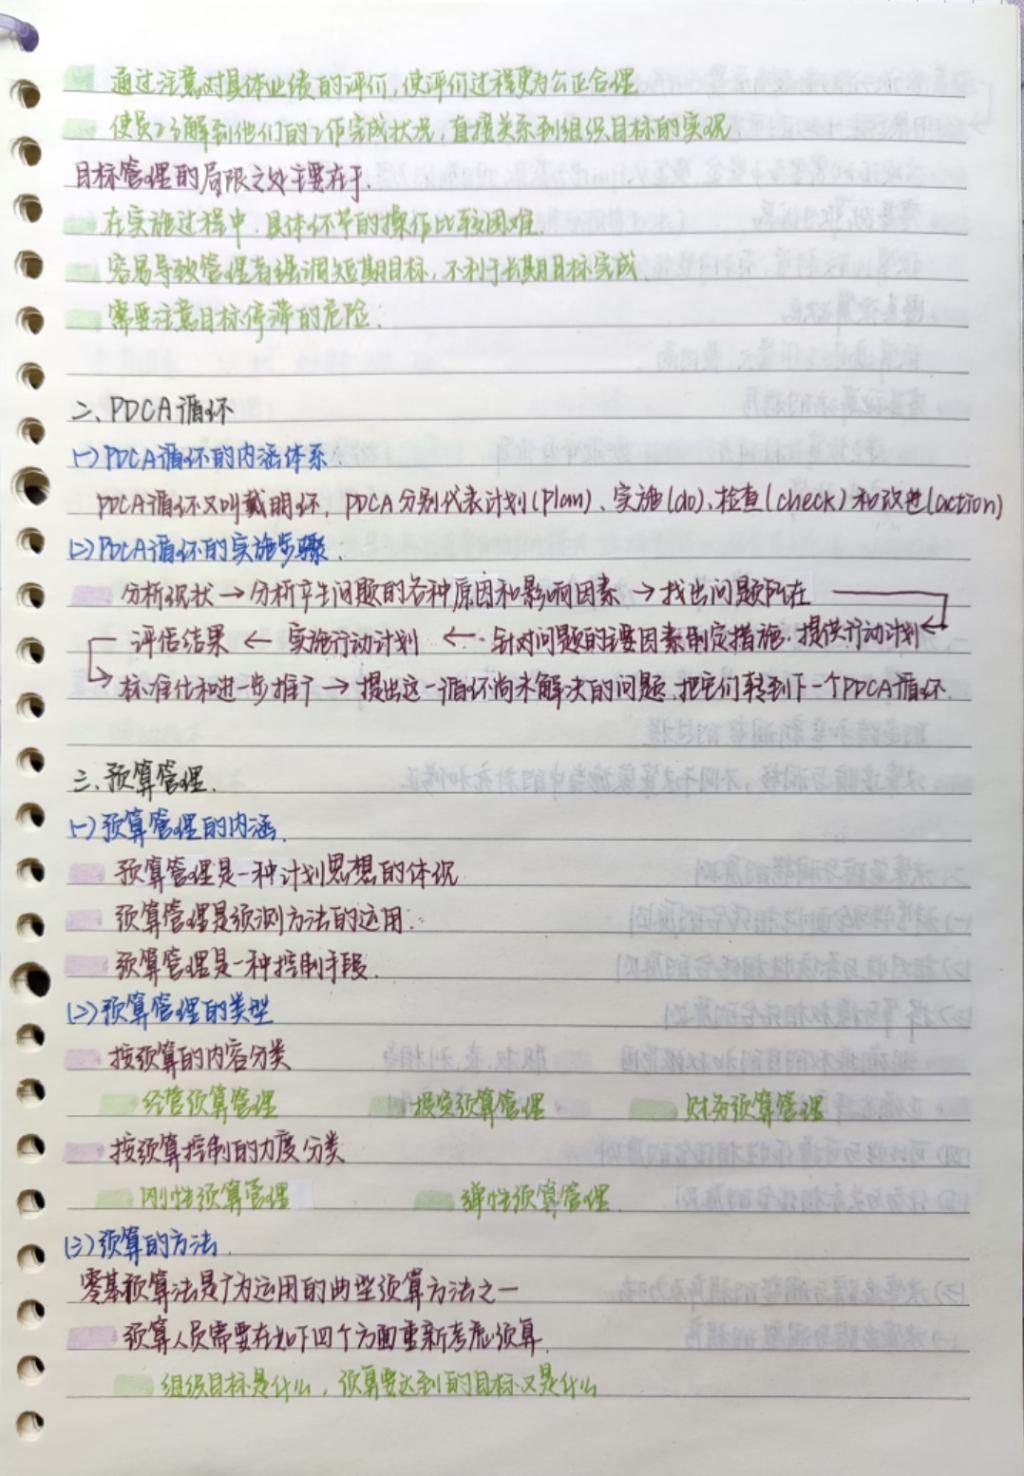 通过注意对具体业绩的评价,使评价过程更为公正合理
使员工了解到他们的工作完成状况,直接关系到组织目标的实现.
目标管理的局限之处主要在于.
在实施过程中.具体环节的操作比较困难.
容易导致管理者强调短期目标,不利于长期目标完成
需要注意目标停滞的危险.
二、PDCA循环
(一)PDCA循环的内涵体系.
PDCA循环又叫戴明环, PDCA分别代表计划(Plan)、实施(do)、检查(check)和改进(action)
(二)PDCA循环的实施步骤.
分析现状→分析产生问题的各种原因和影响因素→找出问题所在
评估结果←实施行动计划←针对问题的主要因素制定措施.提供行动计划
标准化和进一步推广→提出这一循环尚未解决的问题.把它们转到下一个PDCA循环.
三、预算管理.
(一)预算管理的内涵.
预算管理是一种计划思想的体现
预算管理是预测方法的运用.
预算管理是一种控制手段.
(二)预算管理的类型
按预算的内容分类
经营预算管理 投资预算管理 财务预算管理
按预算控制的力度分类
刚性预算管理 弹性预算管理.
(三)预算的方法.
零基预算法是广为运用的典型预算方法之一
预算人员需要在如下四个方面重新考虑预算.
组织目标是什么,预算要达到的目标又是什么